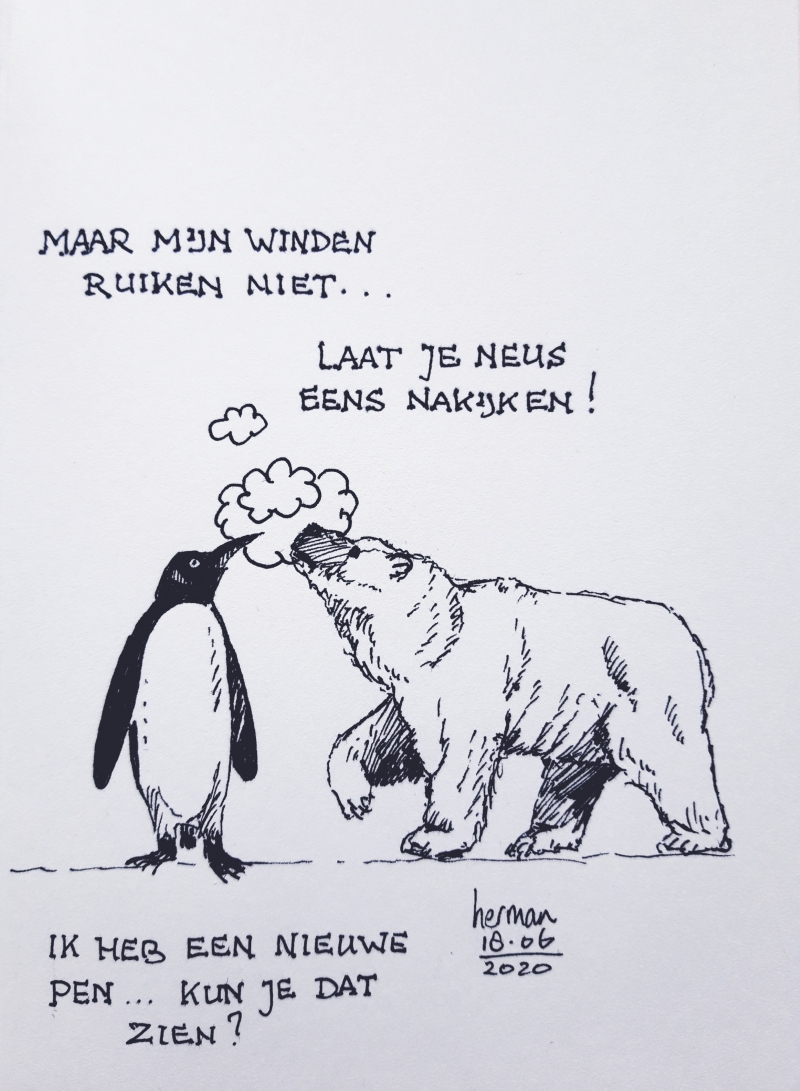 MAAR MIJN WINDEN
RUIKEN NIET...
LAAT JE NEUS
EENS NAKIJKEN!
herman
18.06
2020
IK HEB EEN NIEUWE
PEN... KUN JE DAT
ZIEN?